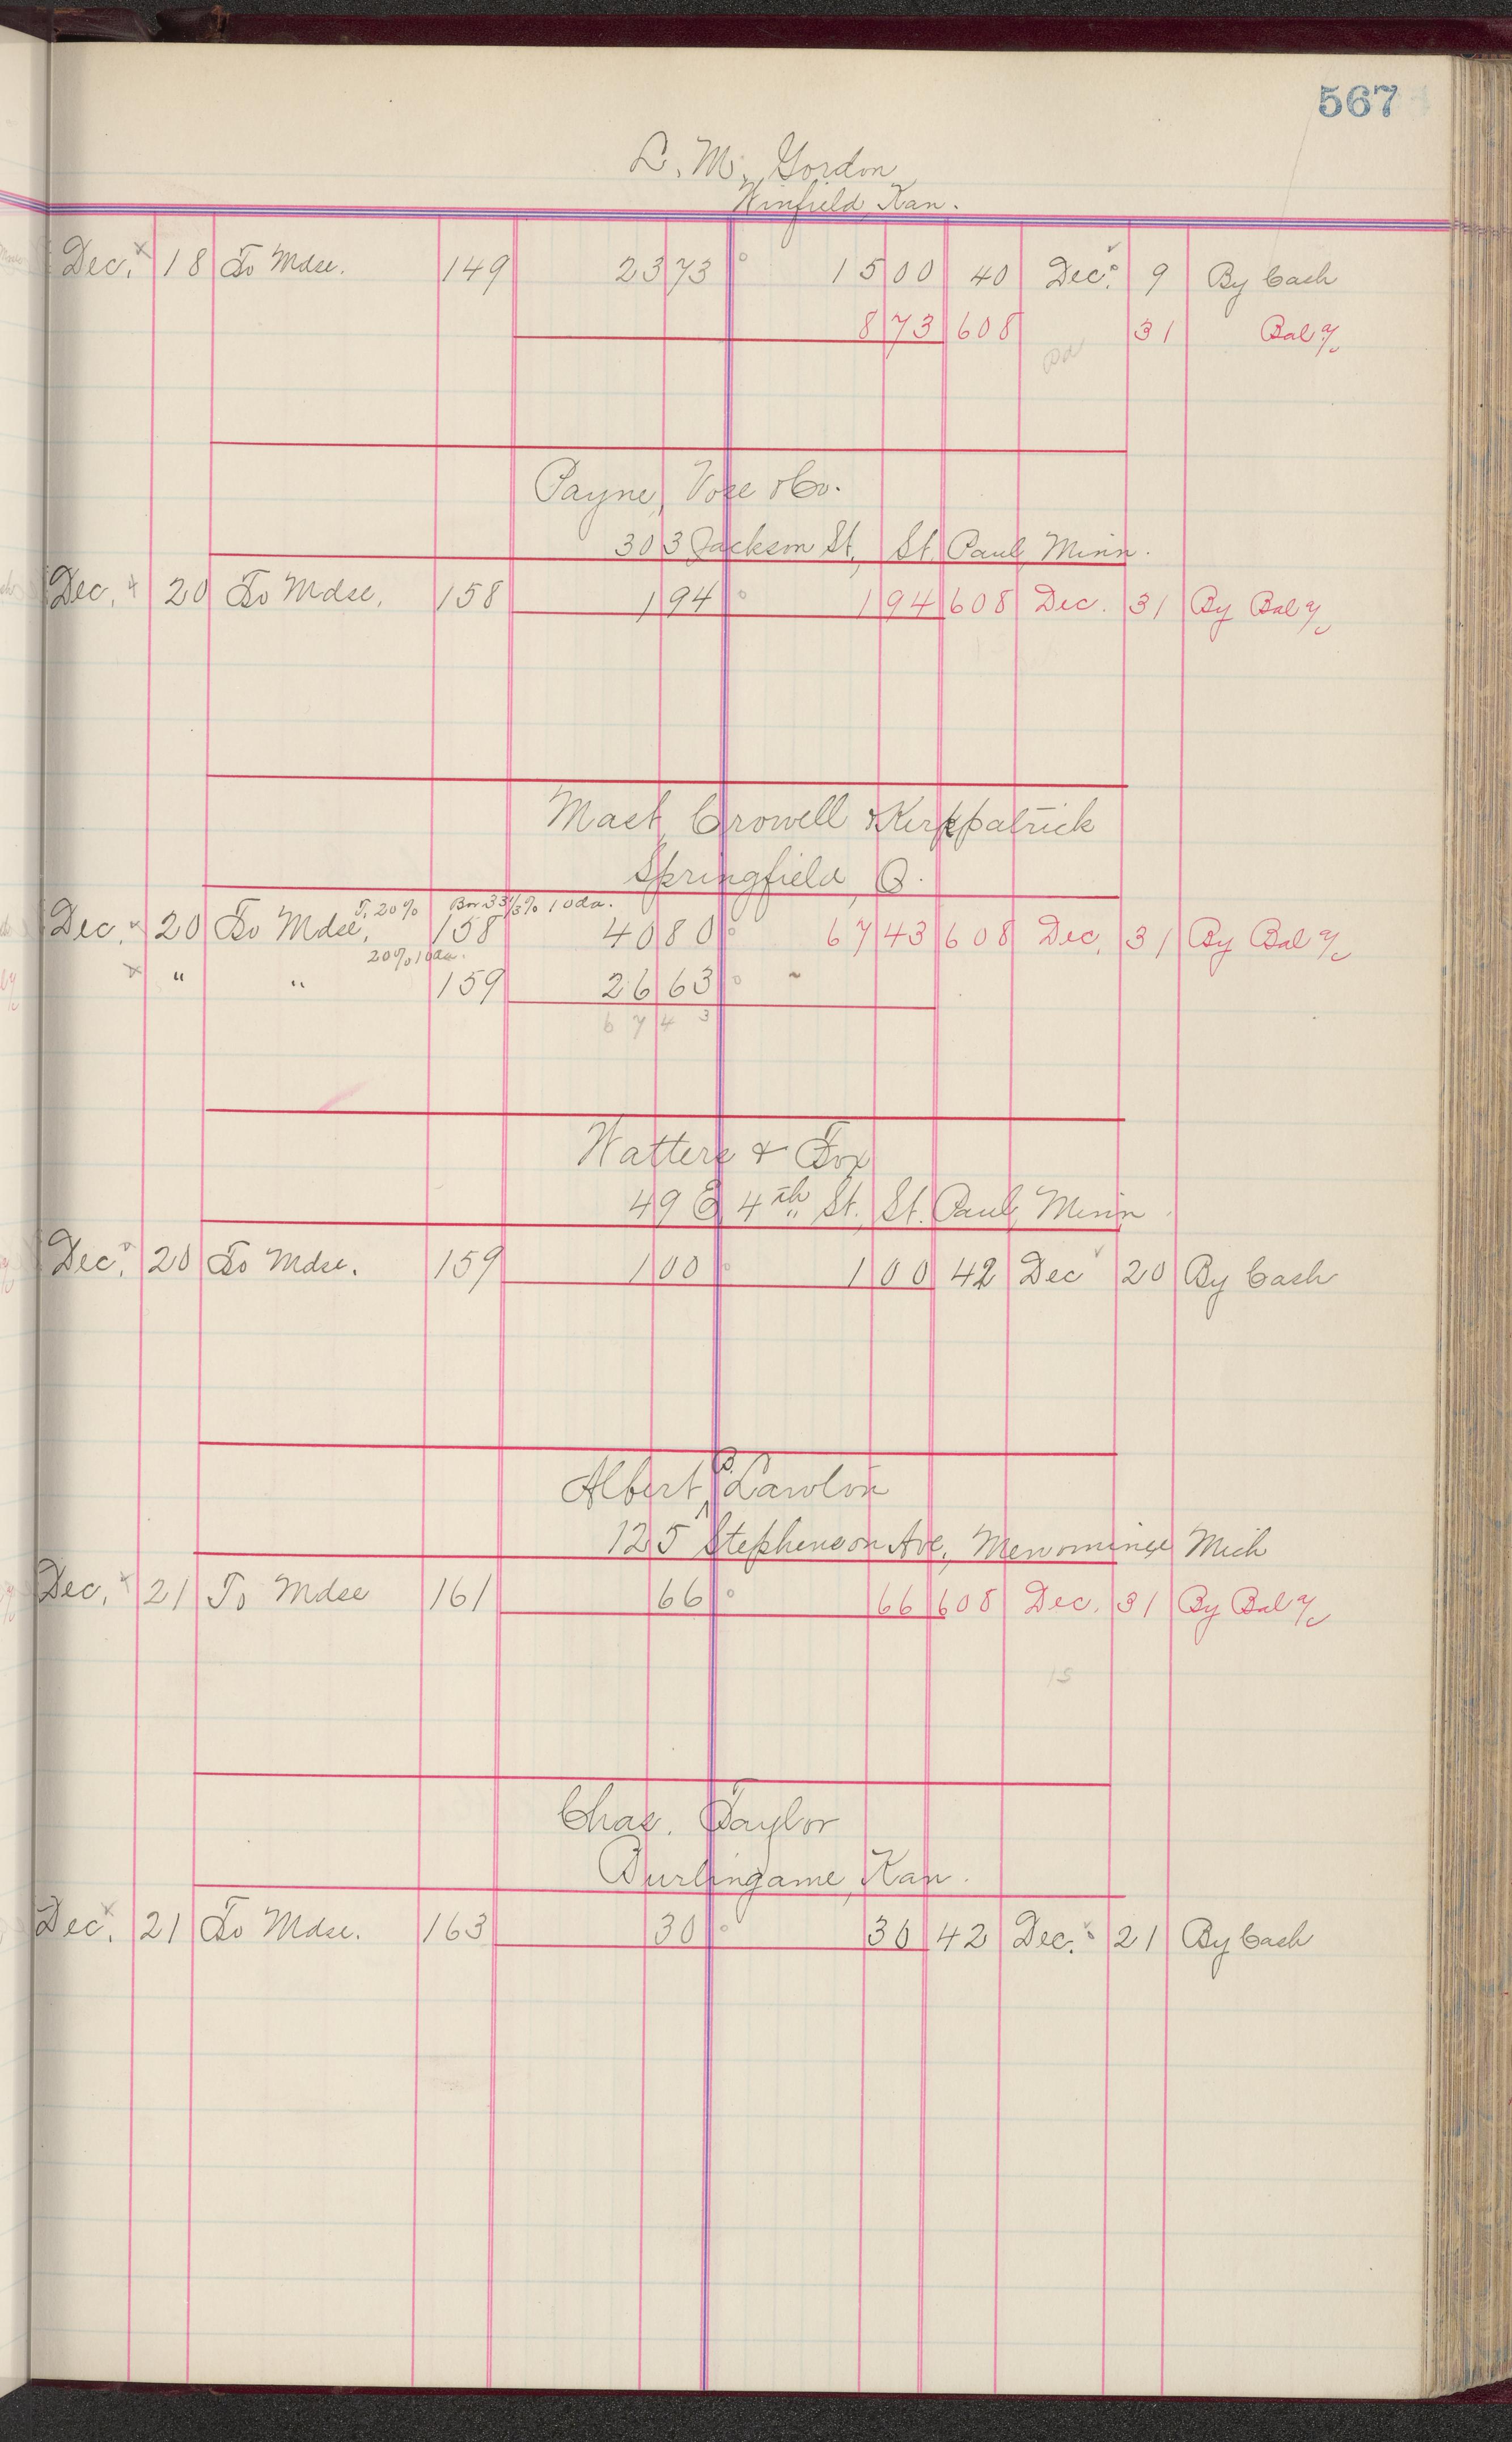 567
L. M. Gordon
Winfield, Kan.
Dec. 18 To Mdse. 149 23 73 15 00 40 Dec. 9 By Cash
8 73 608 31 Bal a/c
Payne, Vose & Co.
303 Jackson St., St. Paul, Minn.
Dec. 20 To Mdse. 158 1 94 1 94 608 Dec. 31 By Bal a/c
Mast, Crowell & Kirkpatrick
Springfield, O.
T. 20% Bx 33 1/3% 10 da.
Dec. 20 To Mdse, 158 40 80 67 43 608 Dec. 31 By Bal a/c
20% 10 da.
" " 159 26 63
67 43
Watters & Fox
49 E 4th St., St. Paul, Minn.
Dec. 20 To Mdse. 159 1 00 1 00 42 Dec 20 By Cash
Albert B. Lawton
125 Stephenson Ave, Menominee Mich
Dec. 21 To Mdse 161 66 66 608 Dec. 31 By Bal a/c
15
Chas. Taylor
Burlingame, Kan.
Dec. 21 To Mdse. 163 30 30 42 Dec. 21 By Cash